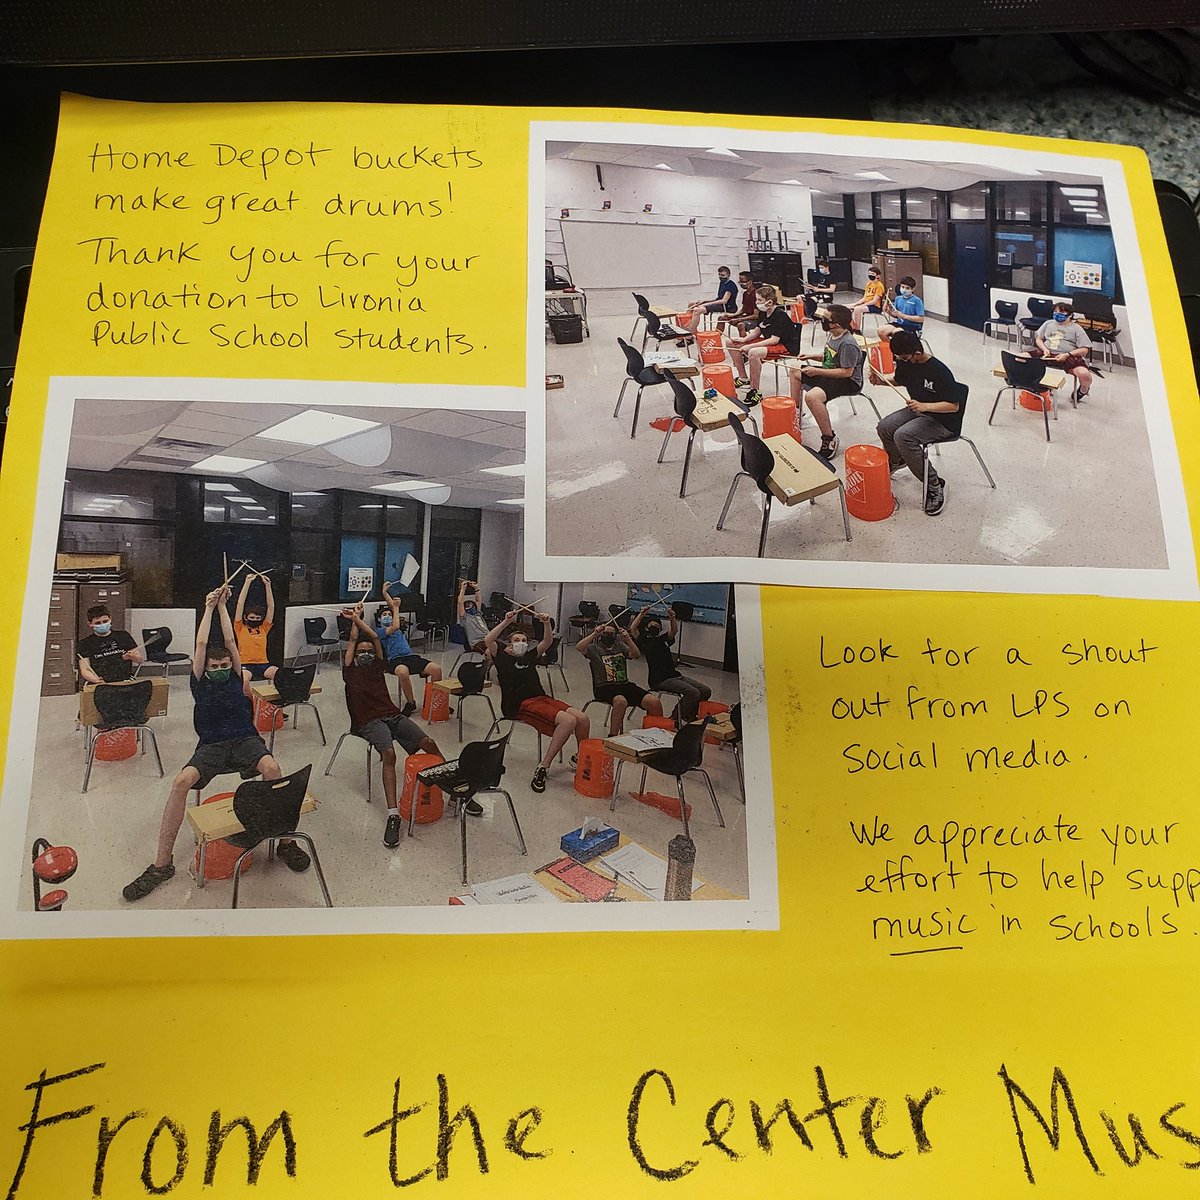 Home Depot buckets
make great drums!
Thank you for your
donation to Livonia
Public School students.
Look for a shout
out from LPS on
social media.
We appreciate your
effort to help supp
music in schools.
From the Center Mus